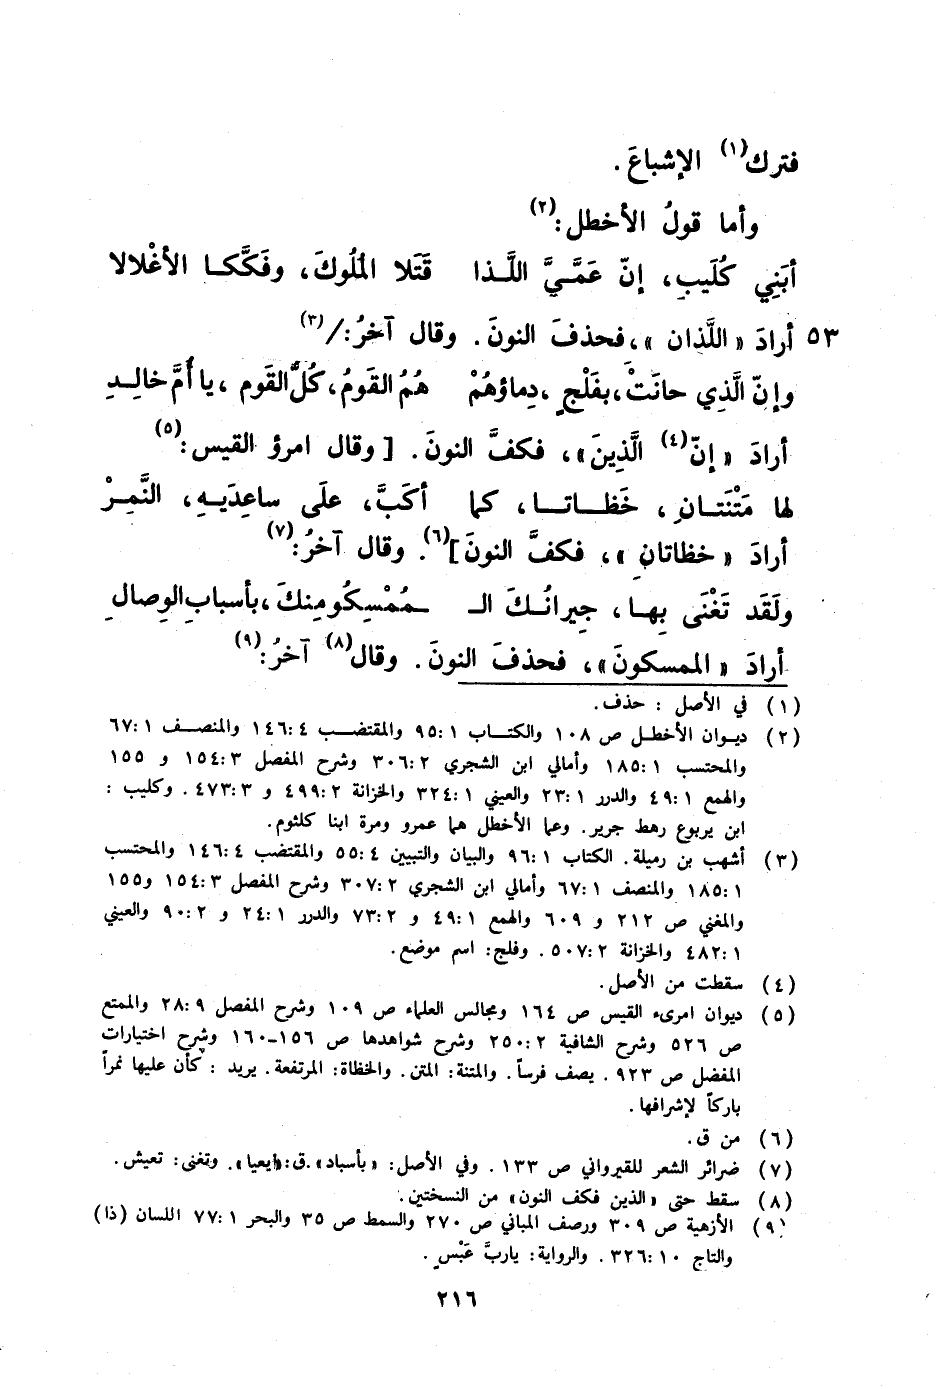 فترك(١) الإشباعَ .
وأما قولُ الأخطل :(٢)
أبَنِي كُلَيبٍ، إنّ عَمَّيَّ اللَّـذا قَتَلا المُلُوكَ، وفَكَّكـا الأغْلالا
٥٣ أرادَ « اللَّذان »، فحذفَ النونَ. وقال آخرُ:/(٣)
وإنّ الَّذِي حانَتْ، بفَلْجٍ، دِماؤهُمْ هُمُ القَومُ، كُلُّ القَوم، يا أُمَّ خالِـدِ
أرادَ « إنّ(٤) الَّذِينَ»، فكفَّ النونَ. [ وقال امرؤ القيس:(٥)
لها مَتْنَتـانِ، خَظـاتـا، كما أكَبَّ، علَى ساعِدَيـهِ، النَّمِرْ
أرادَ « خظاتانِ »، فكفَّ النونَ](٦). وقال آخرُ:(٧)
ولَقَد تَغْنَى بِهـا، جِيرانُـكَ الـ ـمُمْسِكُو مِنكَ، بأسبابِ الوِصالِ
أرادَ « الممسكونَ»، فحذفَ النونَ. وقال(٨) آخرُ:(٩)
(١) في الأصل : حذف.
(٢) ديـوان الأخطـل ص ١٠٨ والكتـاب ١:٩٥ والمقتضـب ٤:١٤٦ والمنصـف ١:٦٧
والمحتسب ١:١٨٥ وأمالي ابن الشجري ٢:٣٠٦ وشرح المفصل ٣:١٥٤ و ١٥٥
والهمع ١:٤٩ والدرر ١:٢٣ والعيني ١:٣٢٤ والخزانة ٢:٤٩٩ و ٣:٤٧٣. وكليب :
ابن يربوع رهط جرير. وعما الأخطل هما عمرو ومرة ابنا كلثوم.
(٣) أشهب بن رميلة. الكتاب ١:٩٦ والبيان والتبيين ٤:٥٥ والمقتضب ٤:١٤٦ والمحتسب
١:١٨٥ والمنصف ١:٦٧ وأمالي ابن الشجري ٢:٣٠٧ وشرح المفصل ٣:١٥٤ و١٥٥
والمغني ص ٢١٢ و ٦٠٩ والهمع ١:٤٩ و ٢:٧٣ والدرر ١:٢٤ و ٢:٩٠ والعيني
١:٤٨٢ والخزانة ٢:٥٠٧. وفلج: اسم موضع.
(٤) سقطت من الأصل.
(٥) ديوان امرىء القيس ص ١٦٤ ومجالس العلماء ص ١٠٩ وشرح المفصل ٩:٢٨ والممتع
ص ٥٢٦ وشرح الشافية ٢:٢٥٠ وشرح شواهدها ص ١٥٦-١٦٠ وشرح اختيارات
المفضل ص ٩٢٣. يصف فرساً. والمتنة: المتن. والخظاة: المرتفعة. يريد : كأن عليها نمراً
باركاً لإشرافها.
(٦) من ق.
(٧) ضرائر الشعر للقيرواني ص ١٣٣. وفي الأصل: «بأسباد». ق: «إيعيا». وتغنى: تعيش.
(٨) سقط حتى «الذين فكف النون» من النسختين.
(٩) الأزهية ص ٣٠٩ ورصف المباني ص ٢٧٠ والسمط ص ٣٥ والبحر ١:٧٧ اللسان (ذا)
والتاج ١٠:٣٢٦. والرواية: يا ربَّ عَبْسٍ .
٢١٦